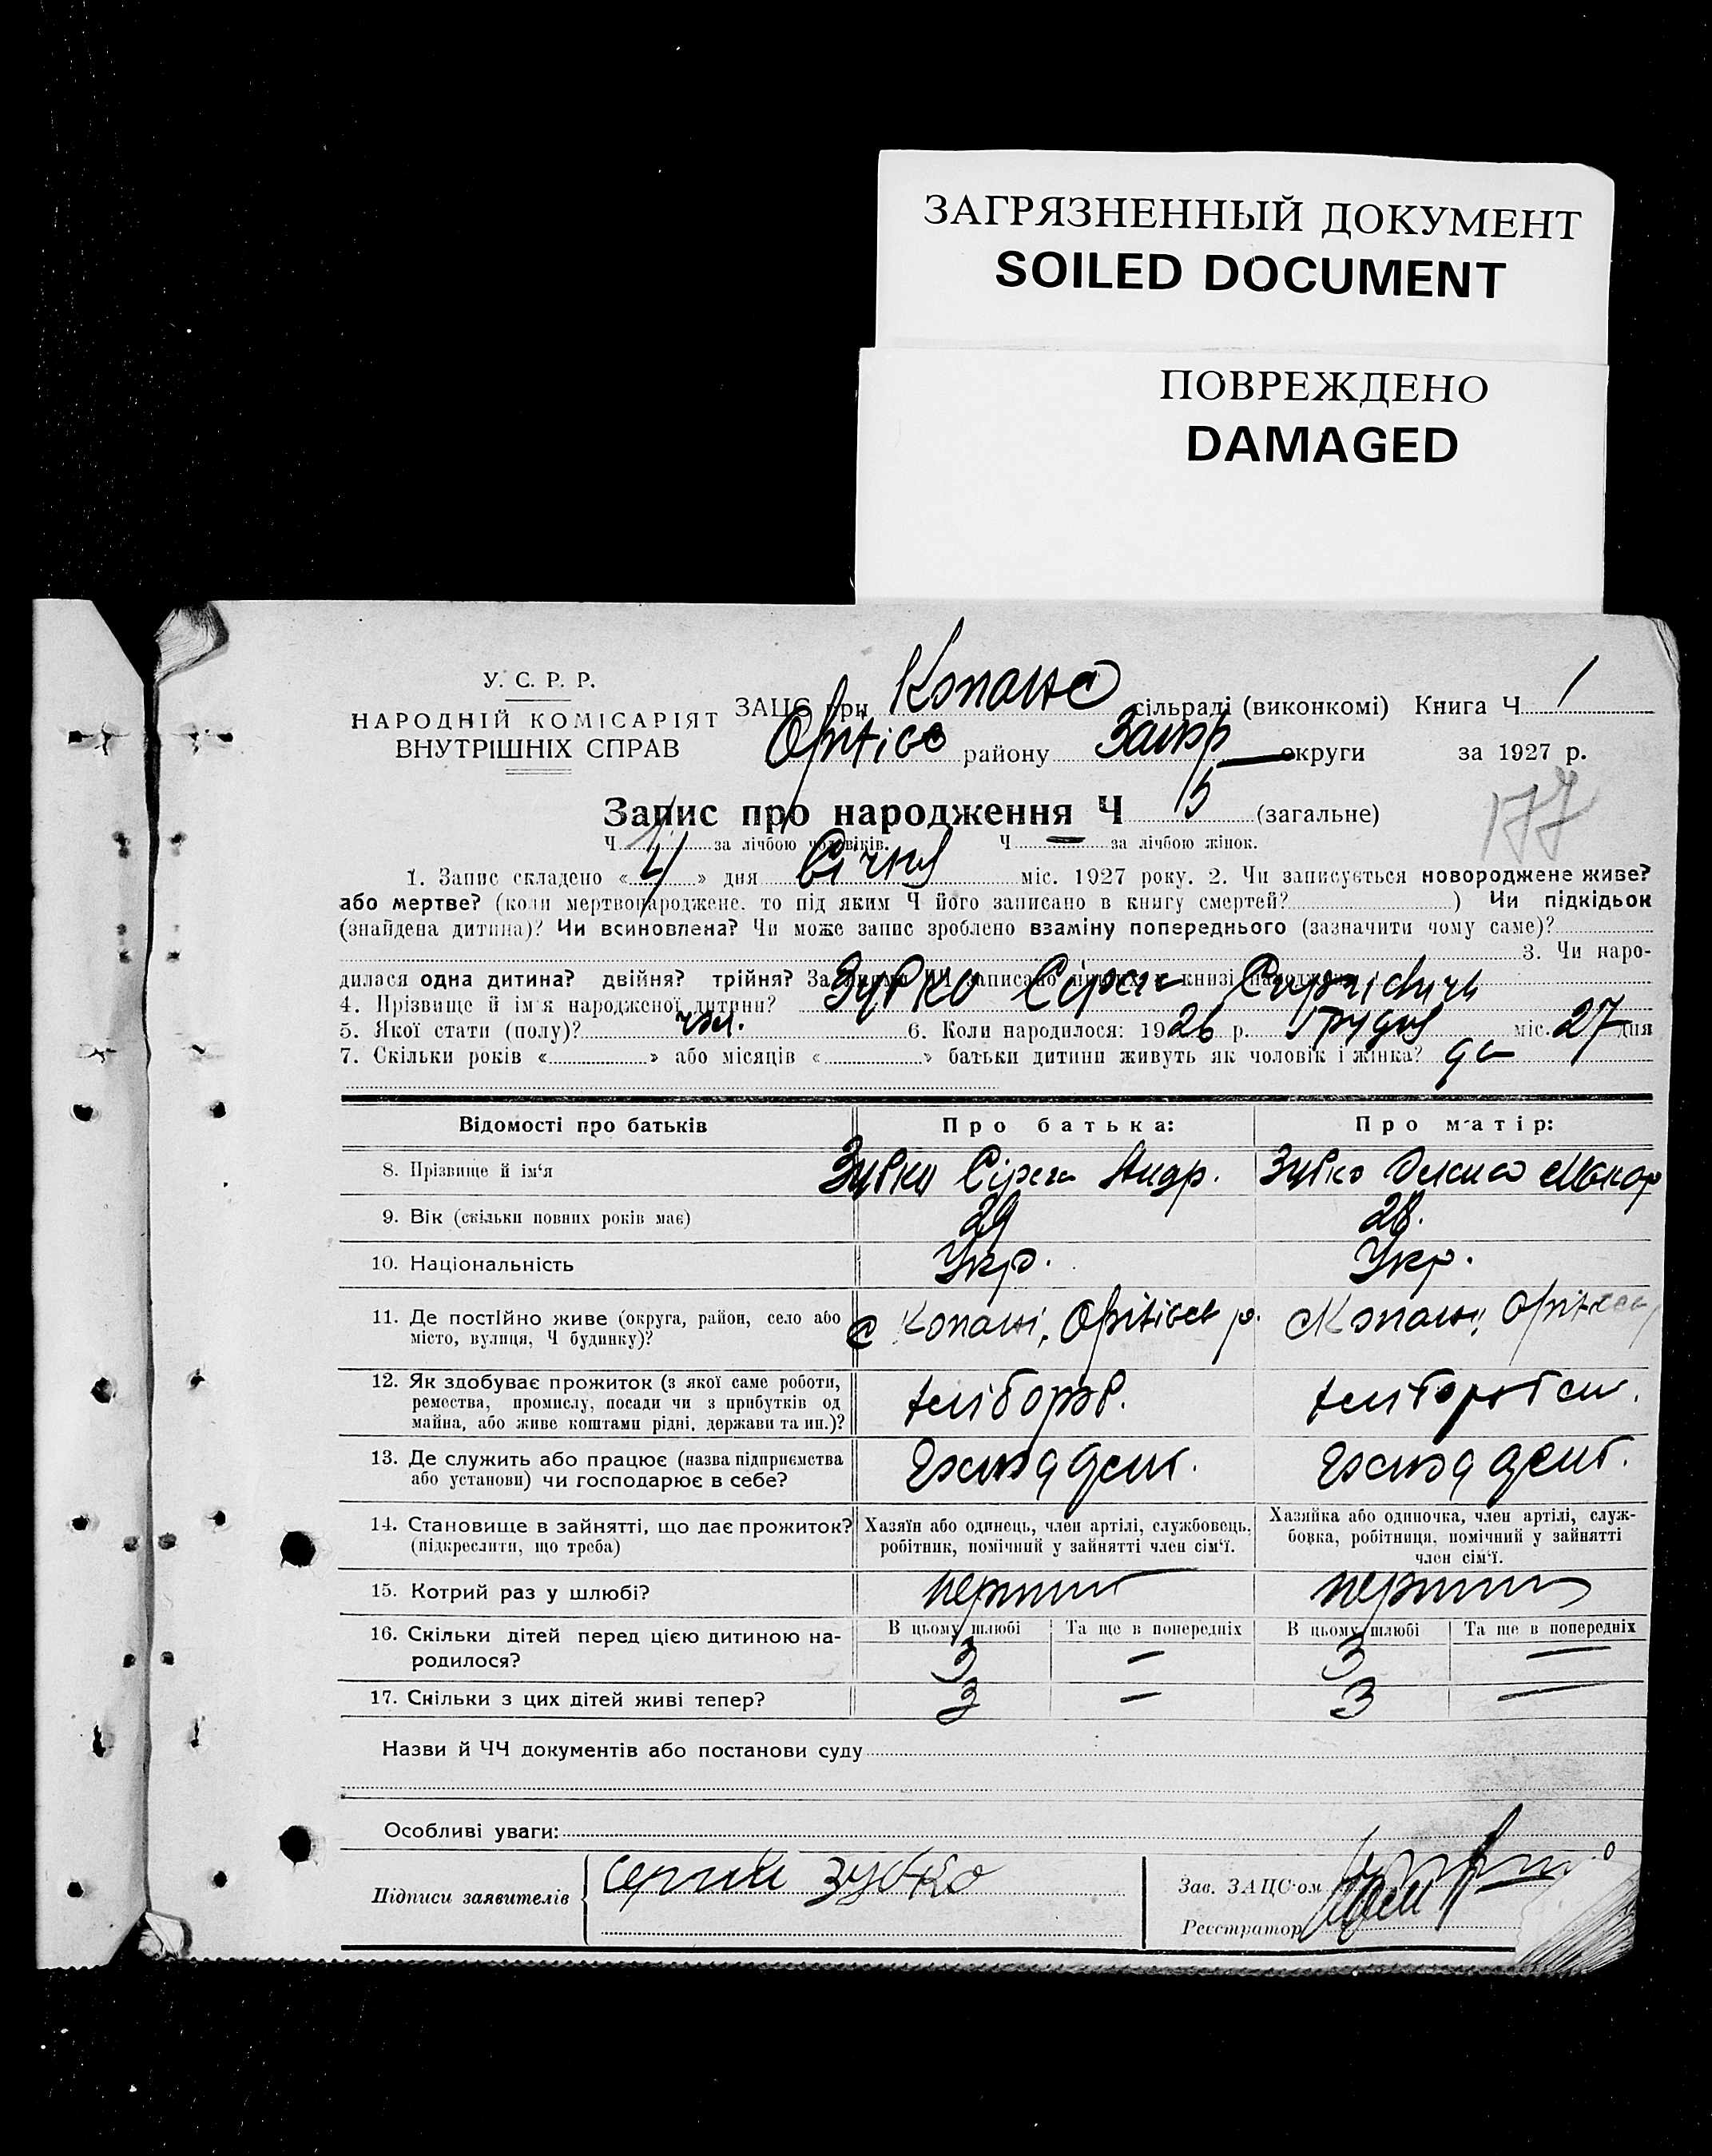 ЗАГРЯЗНЕННЫЙ ДОКУМЕНТ
SOILED DOCUMENT
ПОВРЕЖДЕНО
DAMAGED
У. С. Р. Р.
НАРОДНІЙ КОМІСАРІЯТ
ВНУТРІШНІХ СПРАВ
ЗАЦС при сільраді (виконкомі) Книга Ч 1
району округи за 1927 р.
177
Запис про народження Ч 5 (загальне)
Ч за лічбою чоловіків. Ч — за лічбою жінок.
1. Запис складено «4» дня Січня міс. 1927 року. 2. Чи записується новороджене живе?
або мертве? (коли мертвонароджене, то під яким Ч його записано в книгу смертей? ) Чи підкідьок
(знайдена дитина)? Чи всиновлена? Чи може запис зроблено взаміну попереднього (зазначити чому саме)?
3. Чи наро-
дилася одна дитина? двійня? трійня? За
4. Прізвище й ім'я народженої дитини? Зубко
5. Якої стати (полу)? чол. 6. Коли народилося: 1926 р. Грудня міс. 27 дня
7. Скільки років « » або місяців « » батьки дитини живуть як чоловік і жінка?
Відомості про батьків Про батька: Про матір:
8. Прізвище й ім'я Зубко Андр. Зубко
9. Вік (скільки повних років має) 29 28.
10. Національність Укр. Укр.
11. Де постійно живе (округа, район, село або
місто, вулиця, Ч будинку)? с Копані, р.
12. Як здобуває прожиток (з якої саме роботи,
ремества, промислу, посади чи з прибутків од
майна, або живе коштами рідні, держави та ин.)?
13. Де служить або працює (назва підприємства
або установи) чи господарює в себе?
14. Становище в зайнятті, що дає прожиток?
(підкреслити, що треба)
Хазяїн або одинець, член артілі, службовець,
робітник, помічний у зайнятті член сім'ї.
Хазяйка або одиночка, член артілі, служ-
бовка, робітниця, помічний у зайнятті
член сім'ї.
15. Котрий раз у шлюбі?
В цьому шлюбі Та ще в попередніх В цьому шлюбі Та ще в попередніх
16. Скільки дітей перед цією дитиною на-
родилося? 3 — 3 —
17. Скільки з цих дітей живі тепер? 3 — 3 —
Назви й ЧЧ документів або постанови суду
Особливі уваги:
Підписи заявителів Сергий Зубко
Зав. ЗАЦС'ом
Реєстратор